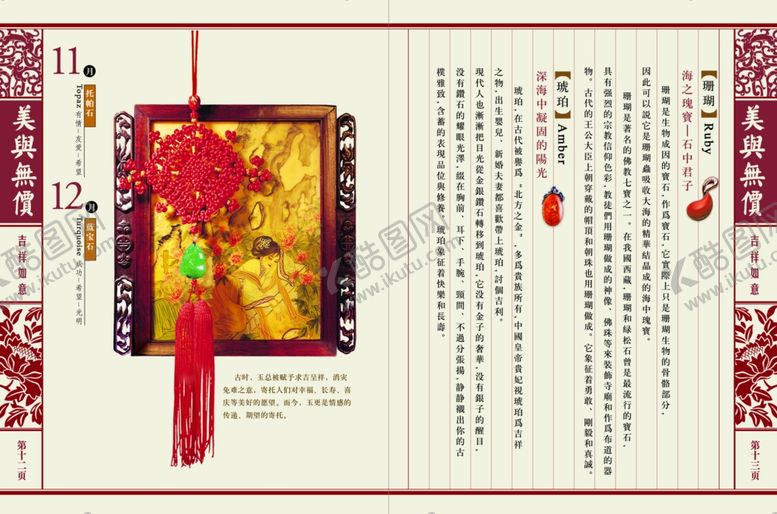 美與無價
吉祥如意
第十三頁
【珊瑚】Ruby
海之瑰寶—石中君子
珊瑚是生物成因的寶石，作爲寶石，它實際上只是珊瑚生物的骨骼部分，
因此可以說它是珊瑚蟲吸收大海的精華結晶成的海中瑰寶。
珊瑚是著名的佛教七寶之一。在我國西藏，珊瑚和綠松石曾是最流行的寶石，
具有强烈的宗教信仰色彩，教徒們用珊瑚做成的神像、佛珠等來裝飾寺廟和作爲布道的器
物。古代的王公大臣上朝穿戴的帽頂和朝珠也用珊瑚做成。它象征着勇敢、剛毅和真誠。
【琥珀】Amber
深海中凝固的陽光
琥珀，在古代被譽爲“北方之金”，多爲貴族所有，中國皇帝貴妃視琥珀爲吉祥
之物，出生嬰兒、新婚夫妻都喜歡帶上琥珀，討個吉利。
現代人也漸漸把目光從金銀鑽石轉移到琥珀，它没有金子的奢華，没有銀子的醒目，
没有鑽石的耀眼光澤，綴在胸前、耳下、手腕、頸間、不過分張揚，靜靜襯出你的古
樸雅致，含蓄的表現品位與修養。琥珀象征着快樂和長壽。
11月
托帕石
Topaz 有情=友愛=希望
12月
藍宝石
Turquoise 成功=希望=光明
古时，玉总被赋予求吉呈祥，消灾
免难之意，寄托人们对幸福、长寿、喜
庆等美好的愿望。而今，玉更是情感的
传递、期望的寄托。
美與無價
吉祥如意
第十二頁
酷图网
www.ikutu.com
酷图网
www.ikutu.com